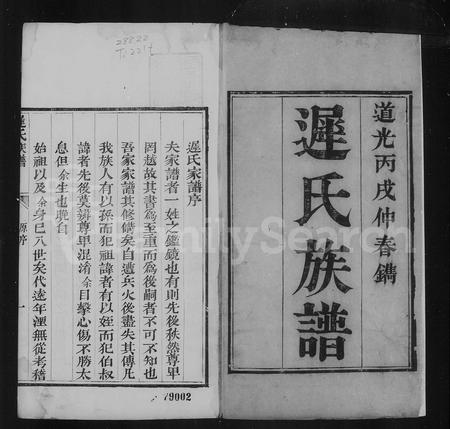 道光丙戌仲春鐫
遲氏族譜
遲氏家譜序
夫家譜者一姓之鑑鏡也有則先後秩然尊卑
罔越故其書為至重而為後嗣者不可不知也
吾家家譜其修備矣自遭兵火後盡失其傳凡
我族人有以孫而犯祖諱者有以姪而犯伯叔
諱者先後莫辨尊卑混淆余目擊心傷不勝太
息但余生也晚自
始祖以及余身已八世矣代遠年湮無從考稽
遲氏族譜
序
一
28822
79002
FamilySearch